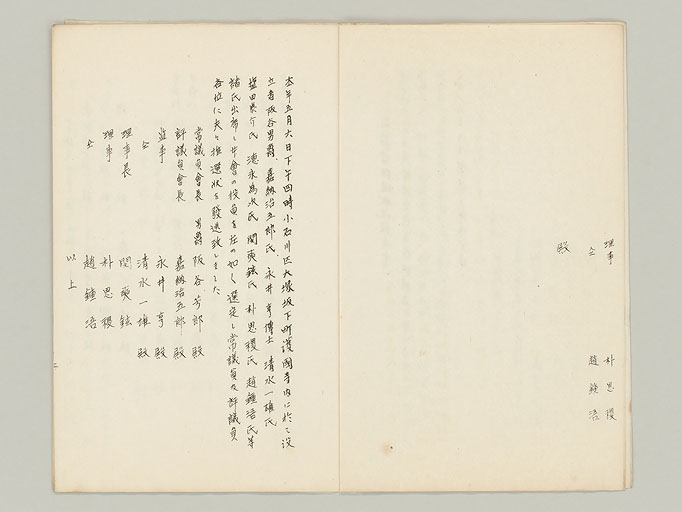 理事 朴思稷
仝 趙鍾浯
殿
本年五月六日下午四時小石川区大塚坂下町護國寺内に於て設
立者阪谷男爵 嘉納治五郎氏 永井亨博士 清水一雄氏
塩田泰介氏 徳永為次氏 関奭鉉氏 朴思稷氏 趙鍾浯氏等
諸氏出席し本會の役員を左の如く選定し常議員及評議員
各位に夫々推選状を發送致しました
常議員會長 男爵 阪谷芳郎殿
評議員會長 嘉納治五郎殿
監事 永井亨殿
仝 清水一雄殿
理事長 関奭鉉
理事 朴思稷
仝 趙鍾浯
以上